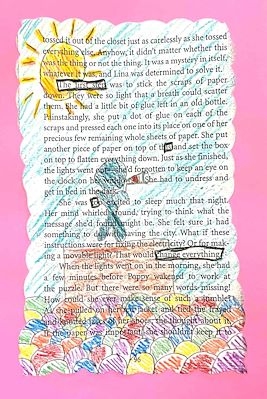 tossed it out of the closet just as carelessly as she tossed
everything else. Anyhow, it didn't matter whether this
was the thing or not the thing. It was a mystery in itself,
whatever it was, and Lina was determined to solve it.
The first step was to stick the scraps of paper
down. They were so light that a breath could scatter
them. She had a little bit of glue left in an old bottle.
Painstakingly, she put a dot of glue on each of the
scraps and pressed each one into its place on one of her
precious few remaining whole sheets of paper. She put
another piece of paper on top of and set the box
on top to flatten everything down. Just as she finished,
the lights went she'd forgotten to keep an eye on
the clock on her She had to undress and
get in bed in the dark.
She was to sleep much that night.
Her mind whirled around, trying to think what the
message she'd found might be. She felt sure it had
something to do saving the city. What if these
instructions were for fixing the electricity? Or for mak-
ing a movable light? That would change everything.
When the lights went on in the morning, she had
a few minutes before Poppy wakened to work at
the puzzle. But there were so many words missing!
How could she ever make sense of such a jumble?
As she pulled on her jacket and tied the frayed
and knotted laces of her shoes, she thought about it.
If the paper was important, she shouldn't keep it to